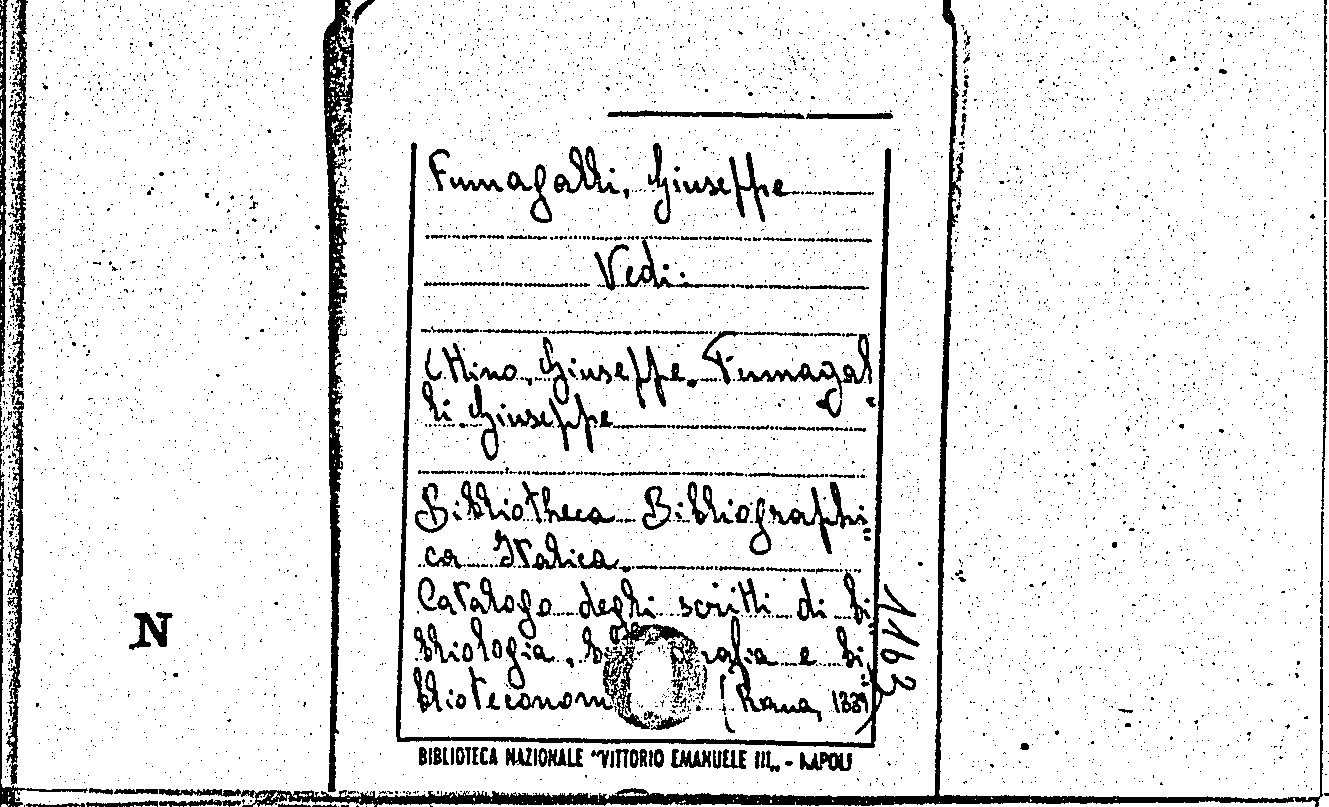 Fumagalli, Giuseppe
Vedi:
Ottino, Giuseppe. Fumagal=
li Giuseppe
Bibliotheca Bibliographi=
ca Italica.
Catalogo degli scritti di bi=
bliologia, e bi=
(Roma, 1889)
1163
N
BIBLIOTECA NAZIONALE "VITTORIO EMANUELE III„ - NAPOLI